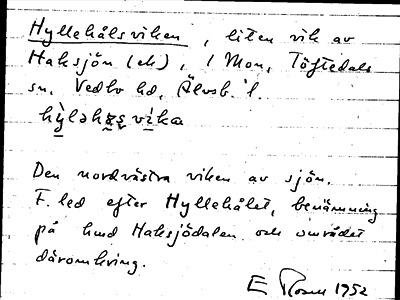 Hyllehålsviken, liten vik av
Haksjön (ek), / Mon, Töftedals
sn, Vedbo hd, Älvsb. l.
Den nordvästra viken av sjön.
F. led efter Hyllehålet, benämning
på Haksjödalen och området
däromkring.
E 1952